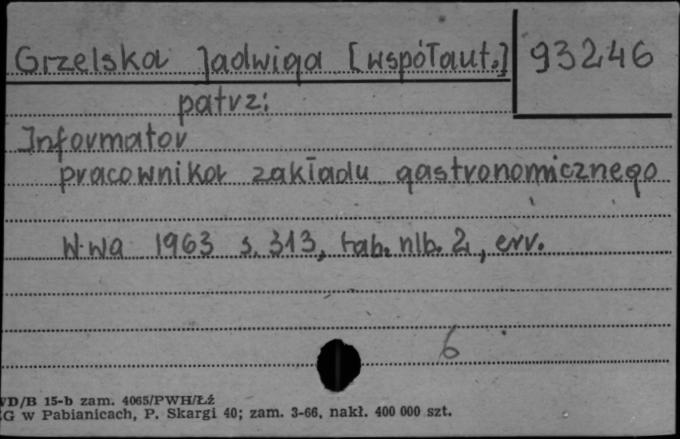 Grzelska Jadwiga [współaut.] 93246
patrz:
Informator
pracownika zakładu gastronomicznego
W-wa 1963 s. 313, tab. nlb. 2, err.
6
WD/B 15-b zam. 4065/PWH/Łź
ZG w Pabianicach, P. Skargi 40; zam. 3-66, nakł. 400 000 szt.